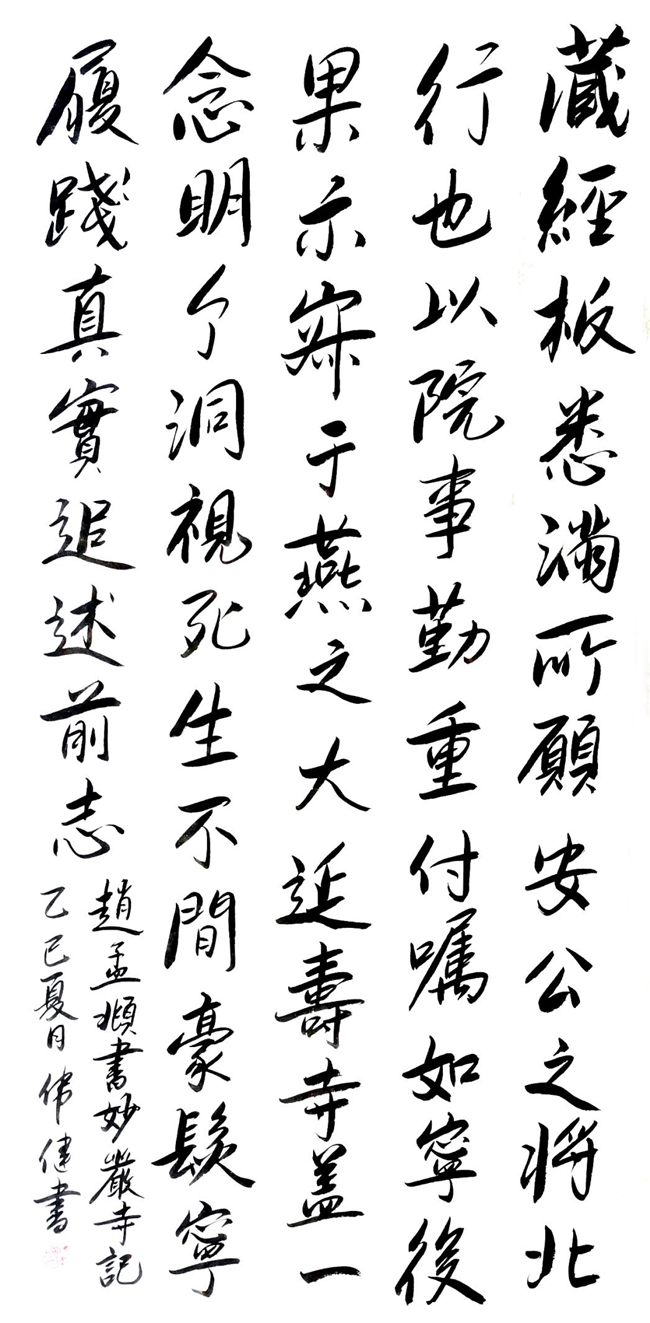 藏經板悉滿所願安公之將北
行也以院事勤重付囑如寧後
果示寂于燕之大延壽寺蓋一
念明了洞視死生不間豪髮寧
履踐真實追述前志
趙孟頫書妙嚴寺記
乙巳夏日偉健書